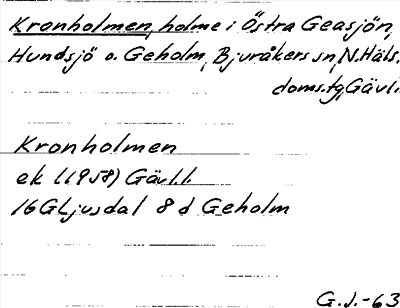 Kronholmen, holme i Östra Geasjön,
Hundsjö o. Geholm, Bjuråkers sn, N. Häls.
doms.tg, Gävl.
Kronholmen
ek l (1958) Gävl.l.
16G Ljusdal 8 d Geholm
G.J.-63